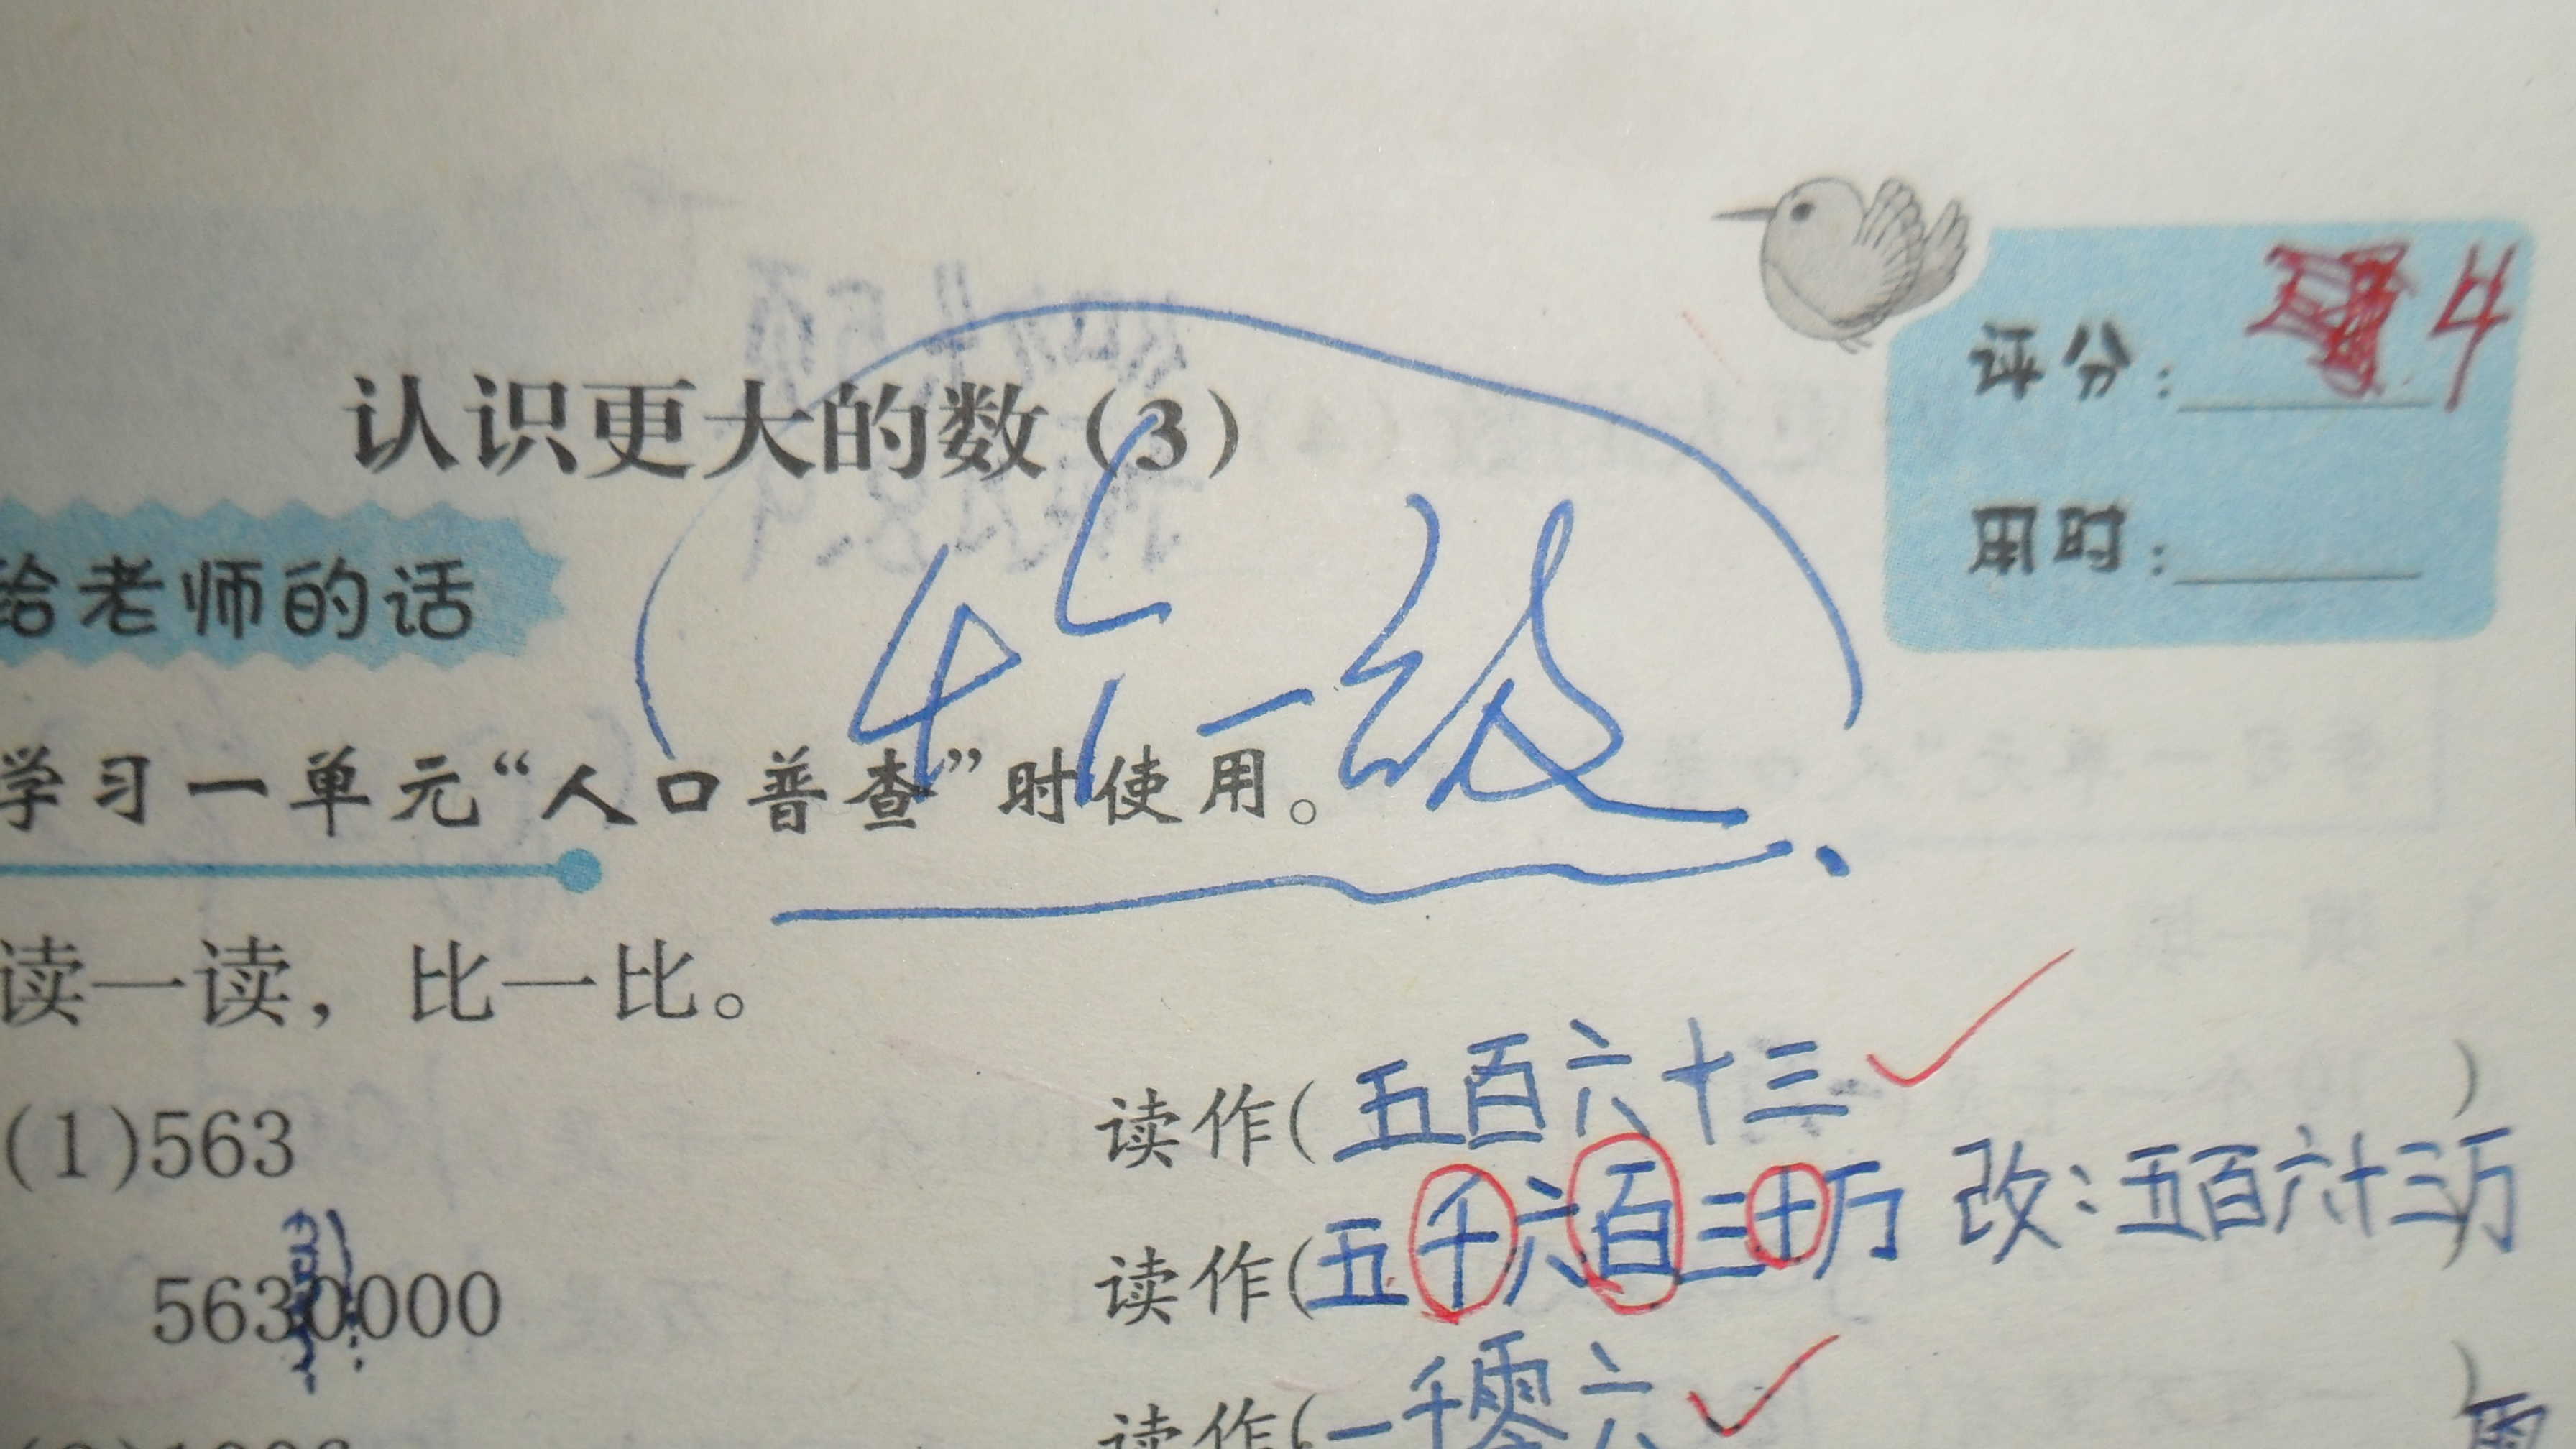 评分：4
认识更大的数(3)
日期：
给老师的话
4位一级.
学习一单元“人口普查”时使用。
读一读，比一比。
(1)563 读作(五百六十三)
5630000 读作(五千六百三十万) 改：五百六十三万
读作(一千零六